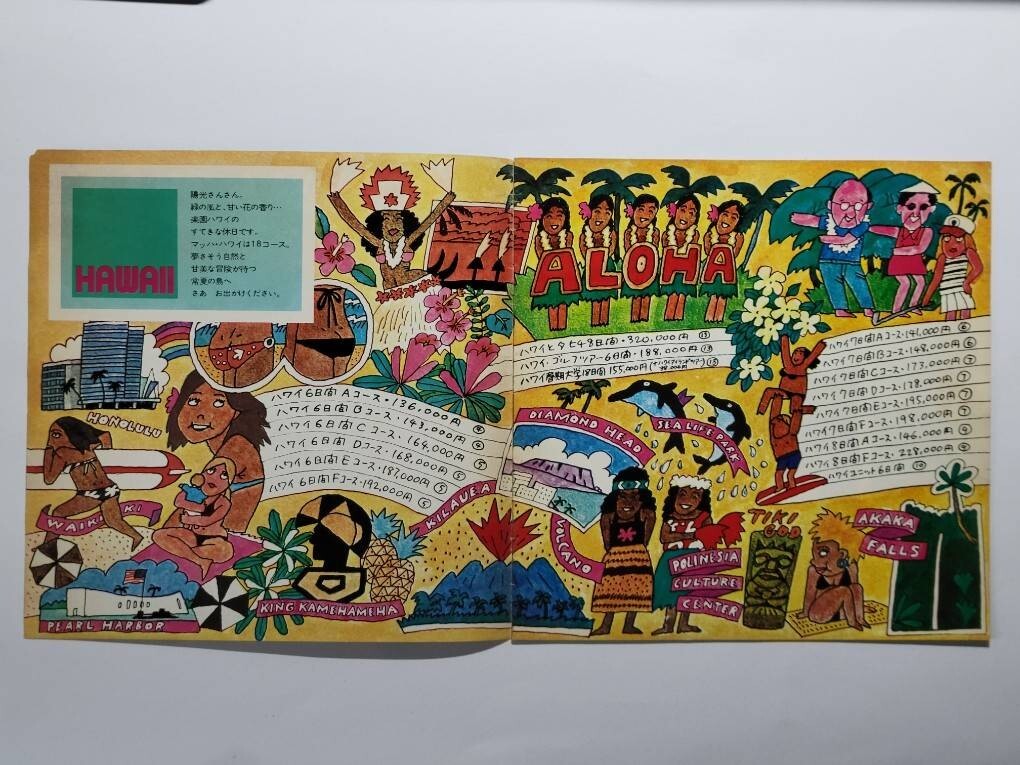 HAWAII
陽光さんさん。
緑の風と、甘い花の香り…
楽園ハワイの
すてきな休日です。
マッハ・ハワイは18コース。
夢さそう自然と
甘美な冒険が待つ
常夏の島へ
さあ お出かけください。
HONOLULU
ハワイ6日間Aコース・136,000円 ④
ハワイ6日間Bコース・143,000円 ④
ハワイ6日間Cコース・164,000円 ④
ハワイ6日間Dコース・168,000円 ⑤
ハワイ6日間Eコース・187,000円 ⑤
ハワイ6日間Fコース・192,000円 ⑤
WAIKIKI
PEARL HARBOR
KING KAMEHAMEHA
KILAUEA
VOLCANO
ALOHA
ハワイとタヒチ8日間・320,000円 ⑬
ハワイ、ゴルフツアー6日間・188,000円 ⑬
ハワイ春期大学18日間 155,000円
DIAMOND HEAD
SEA LIFE PARK
ハワイ7日間Aコース・141,000円 ⑥
ハワイ7日間Bコース・148,000円 ⑥
ハワイ7日間Cコース・173,000円 ⑦
ハワイ7日間Dコース・178,000円 ⑦
ハワイ7日間Eコース・195,000円 ⑦
ハワイ7日間Fコース・198,000円 ⑦
ハワイ8日間Aコース・146,000円 ⑨
ハワイ8日間Fコース・228,000円 ⑨
ハワイユニット6日間 ⑩
POLINESIA
CULTURE
CENTER
TIKI
GOD
AKAKA
FALLS